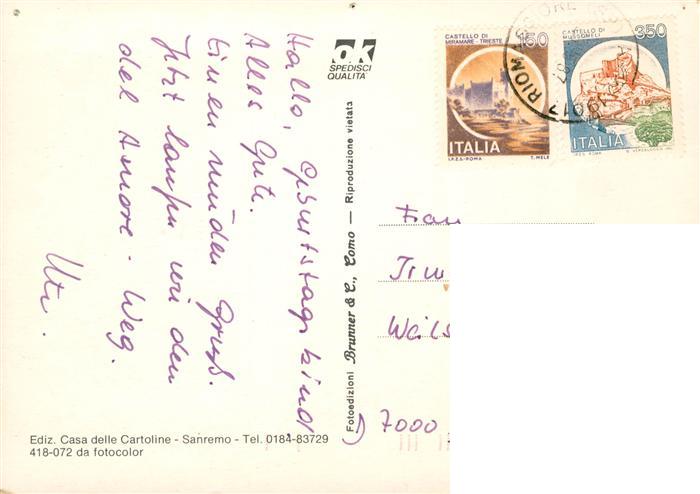 Hallo, Geburtstagskind
Alles Gute.
Einen müden Gruß.
Jetzt laufen wir den
del Amore - Weg.
Ute.
ok
SPEDISCI
QUALITA'
Fotoedizioni Brunner & C., Como — Riproduzione vietata
CASTELLO DI
MIRAMARE - TRIESTE
150
ITALIA
I.P.Z.S. - ROMA T. MELE
CASTELLO DI
MUSSOMELI
350
ITALIA
I.P.Z.S. ROMA
RIOMAGGIORE
Frau
7000
Ediz. Casa delle Cartoline - Sanremo - Tel. 0184-83729
418-072 da fotocolor